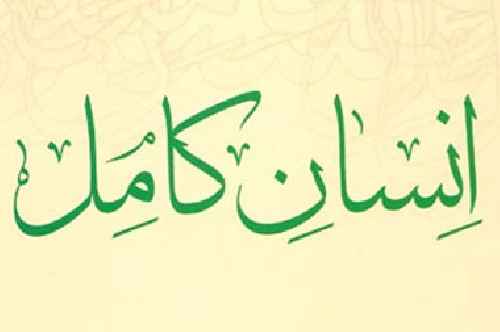 اِنسانِ کامِل